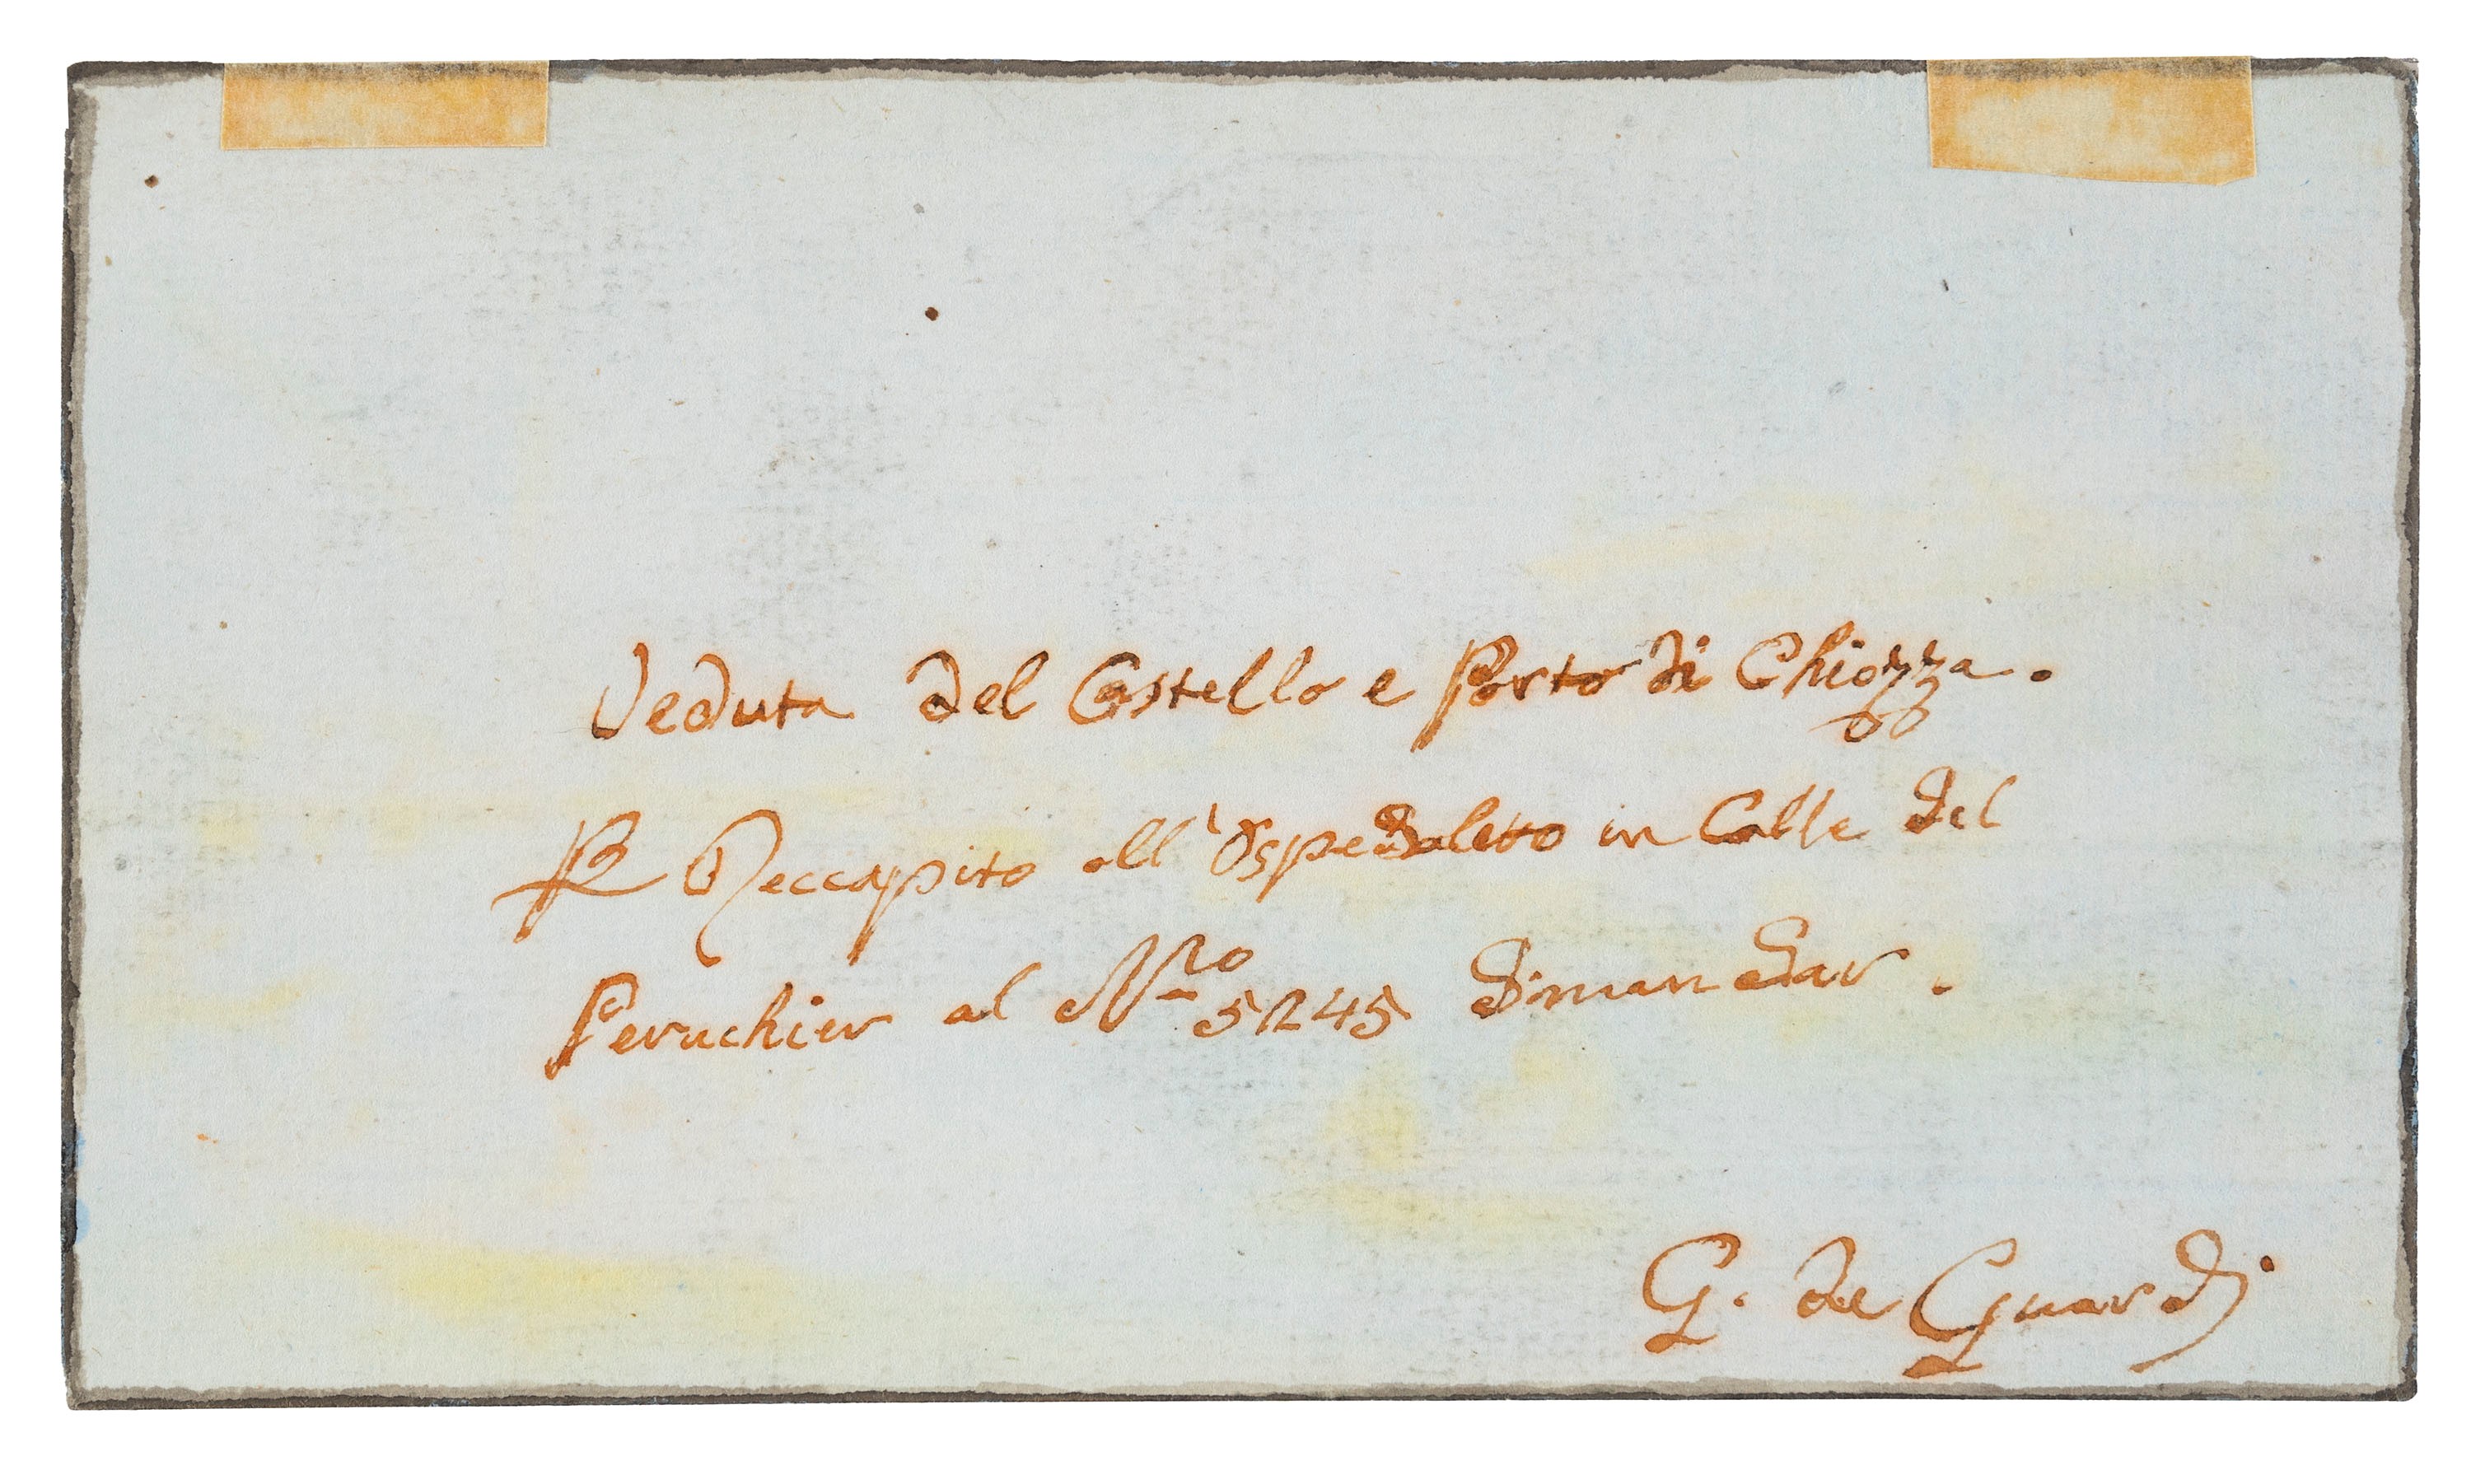 Veduta del Castello e Porto di Chiozza.
P Reccapito all'Ospedaletto in Calle del
Peruchier al Nro 5245 dimandar.
G. de Guardi